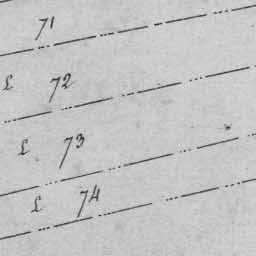 71
£ 72
£ 73
£ 74